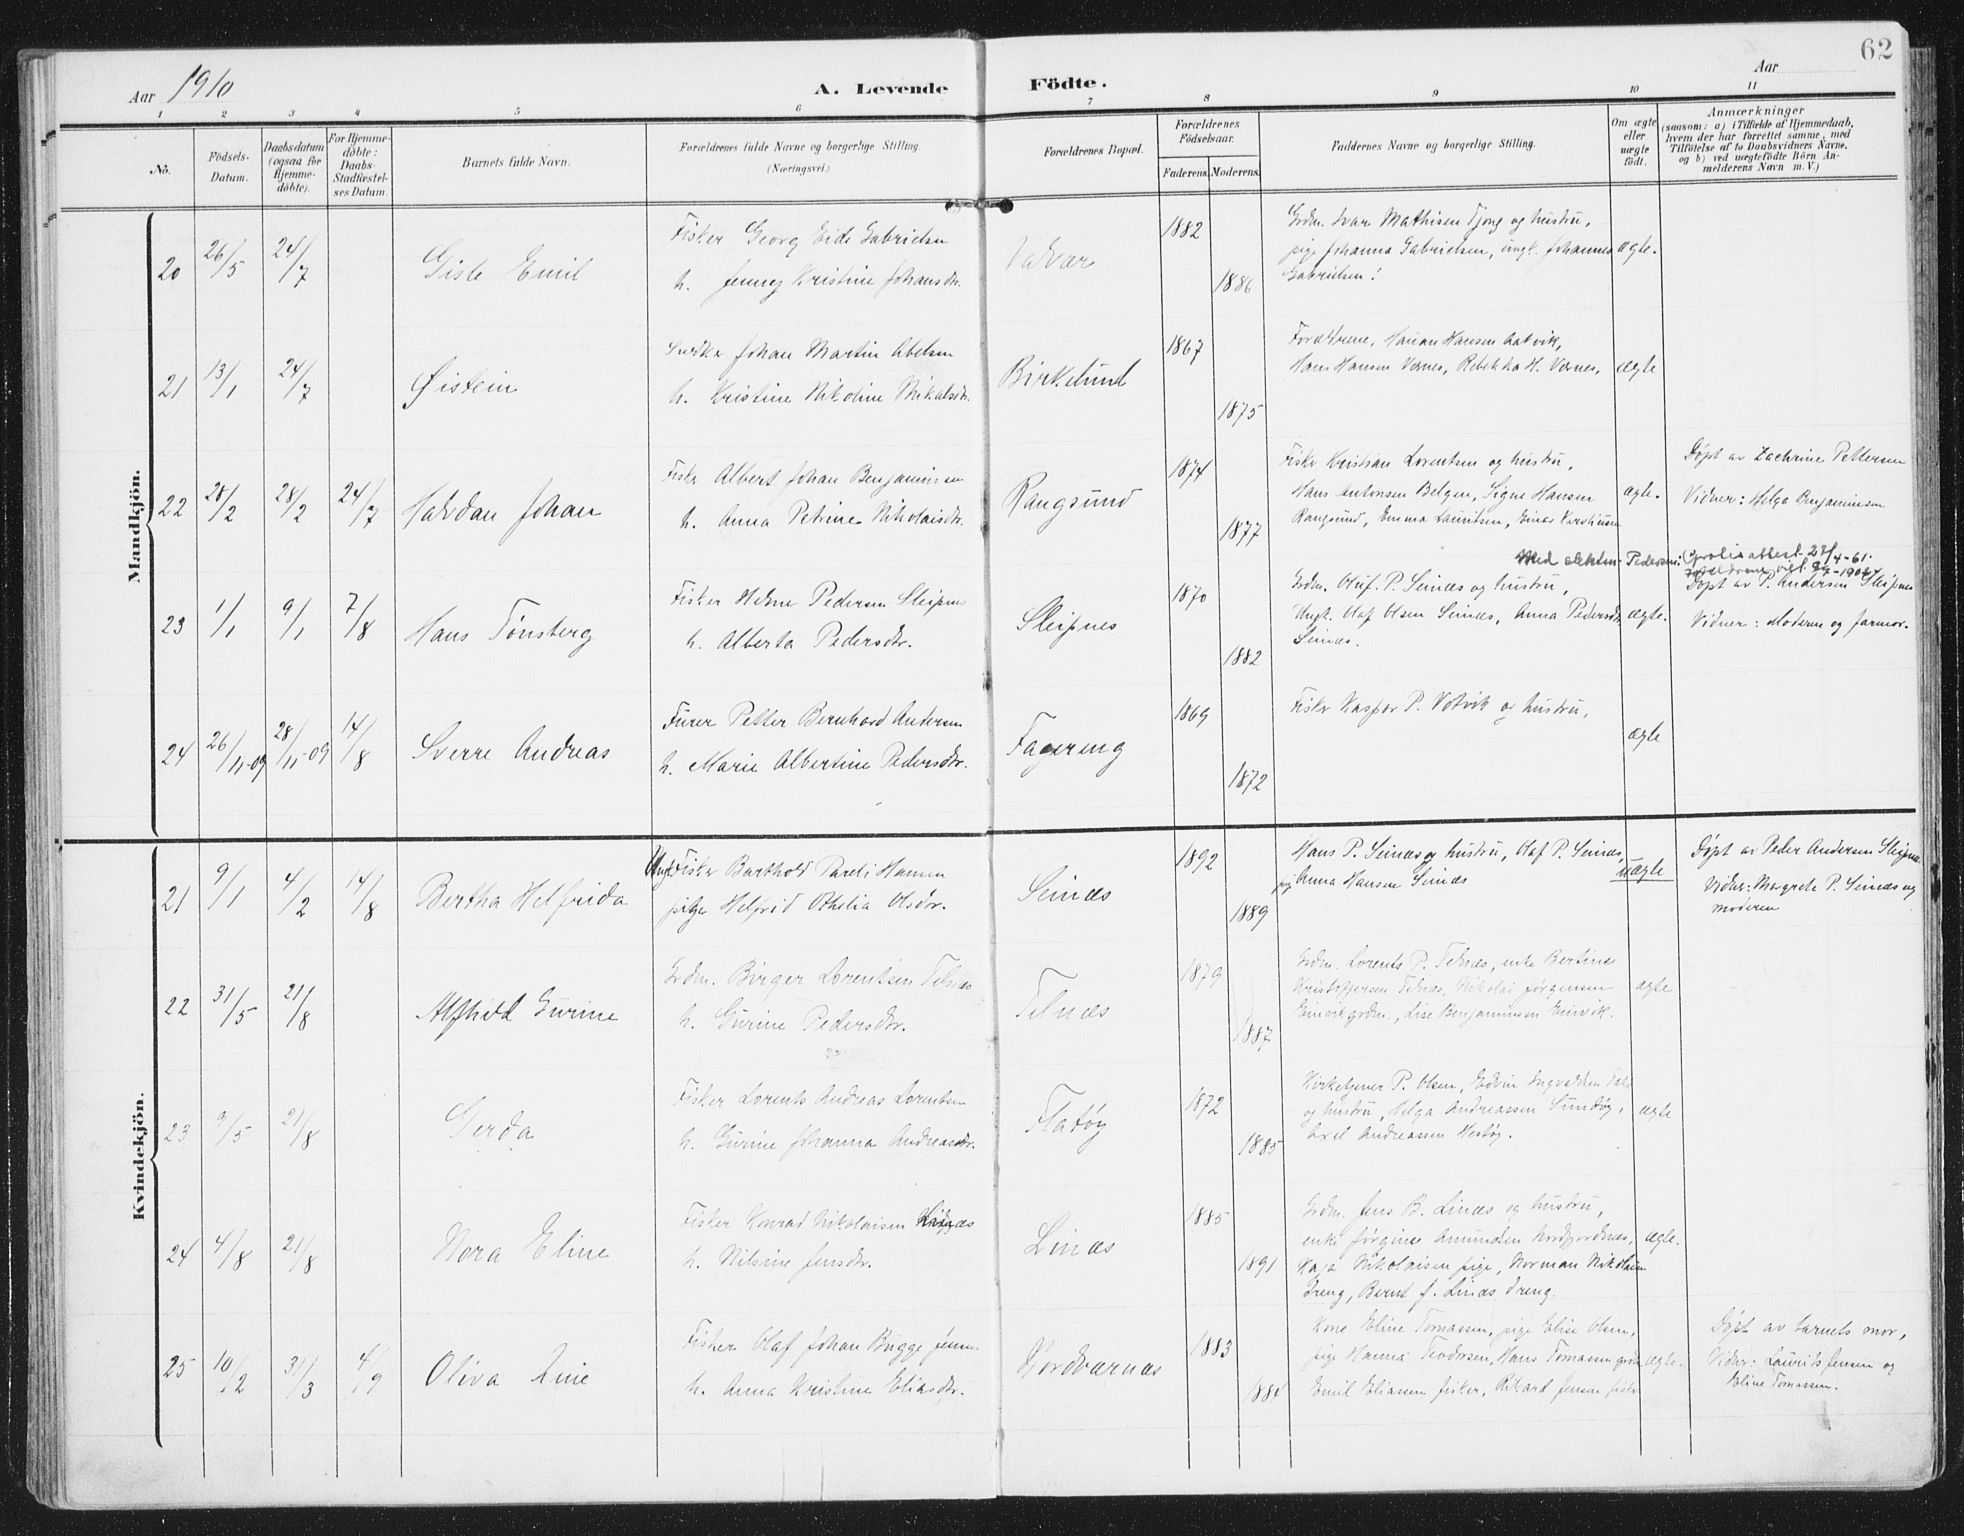 62
Aar 1910
A. Levende Födte.
Aar
1 2 3 4 5 6 7 8 9 10 11
No.
Födsels-
Datum.
Daabsdatum
(ogsaa for
Hjemme-
döbte).
For Hjemme-
döbte:
Daabs-
Stadfæstel-
ses Datum.
Barnets fulde Navn.
Forældrenes fulde Navne og borgerlige Stilling.
(Næringsvei.)
Forældrenes Bopæl.
Forældrenes
Födselsaar.
Faderens. Moderens.
Faddernes Navne og borgerlige Stilling.
Om ægte
eller
uægte
födt.
Anmærkninger
(saasom: a) i Tilfælde af Hjemmedaab,
hvem der har forrettet samme, med
Tilföielse af to Daabsvidners Navne,
og b) ved uægtefödte Börn An-
melderens Navn m. V.)
Mandkjön.
20 26/5 24/7 Gisle Emil
Fisker Georg Eide Gabrielsen
h. Jenny Kristine Johansdr.
Valvær
1882
1886
Grdm. Ivar Mathisen Tjong og hustru,
pige Johanna Gabrielsen, ungk. Johannes
Gabrielsen!
ægte.
21 13/1 24/7 Øistein
Johan Martin Abelsen
h. Kristine Nikoline Nikolaisdr.
Birkelund
1867
1875
Forældrene, Hansen
Hans Hansen Vernes, Rebekka H. Vernes,
ægte
22 28/2 28/2 24/7 Halvdan Johan
Fisker Albert Johan Benjaminsen
h. Anna Petrine Nikolaisdr.
Rangsund
1874
1877
Fisker Kristian Lorentsen og hustru,
Hans Antonsen Belgen, Signe Hansen
Rangsund, Emma Lauritsen,
ægte.
Døpt av Zachrine Pettersen
Vidner: Helga Benjaminsen
23 1/1 9/1 7/8 Hans Tønsberg
Fisker Helme Pedersen Sleipnes
h. Alberta Pedersdr.
Sleipnes
1870
1882
Med slektsn. Pedersen:
Grdm. Oluf. P. Seinæs og hustru,
Ungk. Olaf Olsen Seinæs, Anna Pedersdr.
Seinæs.
ægte.
Døpt av P. Andersen Sleipnes
Vidner: Moderen og farmor.
24 26/11-09 28/11-09 14/8 Sverre Andreas
Furer Petter Bernhard Andersen
h. Marie Albertine Pedersdr.
Fagereng
1869
1872
Fisker Kaspar P. Votvik og hustru,
ægte
Kvindekjön.
21 9/1 4/2 14/8 Bertha Helfrida
Ungk. Fisker Barthold Pareli Hansen
pige Helfrid Othelia Olsdr.
Seinæs
1892
1889
Hans P. Seinæs og hustru, Olaf P. Seinæs,
pige Anna Hansen Seinæs
uægte
Døpt av Peder Andersen Sleipnes
Vidner: Margrete P. Seinæs og
moderen
22 31/5 21/8 Alfhild Gurine
Grdm. Birger Lorentsen Telnæs
h. Gurine Pedersdr.
Telnæs
1879
1887
Grdm. Lorents P. Telnæs, enke Bertine
Kristoffersen Telnæs, Nikolai Jørgensen
Einvik grdm., Lise Benjaminsen Einvik.
ægte
23 9/5 21/8 Gerda
Fisker Lorents Andreas Lorentsen
h. Gurine Johanna Andreasdr.
Flatøy
1872
1885
Kirketjener P. Olsen, Edvin Ingvaldsen
og hustru, Helga Andreassen Sundøy,
Axel Andreassen Hestøy.
ægte
24 4/8 21/8 Nora Eline
Fisker Konrad Nikolaisen
h. Nilsine Jensdr.
Linæs
1885
1891
Grdm. Jens B. Linæs og hustru,
enke Jørgine Amundsen Nordfjordnæs,
Kaja Nikolaisen pige, Norman Nikolaisen
dreng, Bernt J. Linæs dreng.
ægte.
25 10/2 31/3 4/9 Oliva Aine
Fisker Olaf Johan Bugge Jensen
h. Anna Kristine Eliasdr.
Nordværnæs
1883
1884
Kone Eline Tomassen, pige Elise Olsen,
pige Hanna Teodorsen, Hans Tomassen grdm.
Emil Eliassen fisker, Rikard Jensen fisker
ægte.
Døpt av barnets mor,
Vidner: Laurits Jensen og
Eline Tomassen.